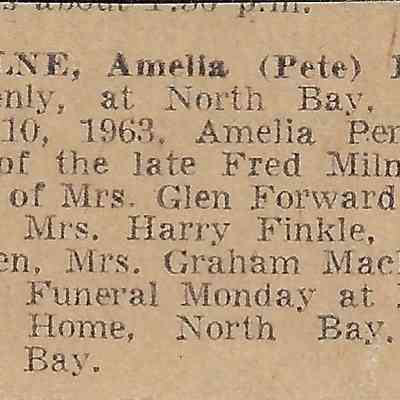 s about 1.30 p.m.
LNE, Amelia (Pete)
enly, at North Bay,
10, 1963, Amelia Pen
of the late Fred Miln
of Mrs. Glen Forward
Mrs. Harry Finkle,
en, Mrs. Graham Mac
Funeral Monday at
Home, North Bay.
Bay.